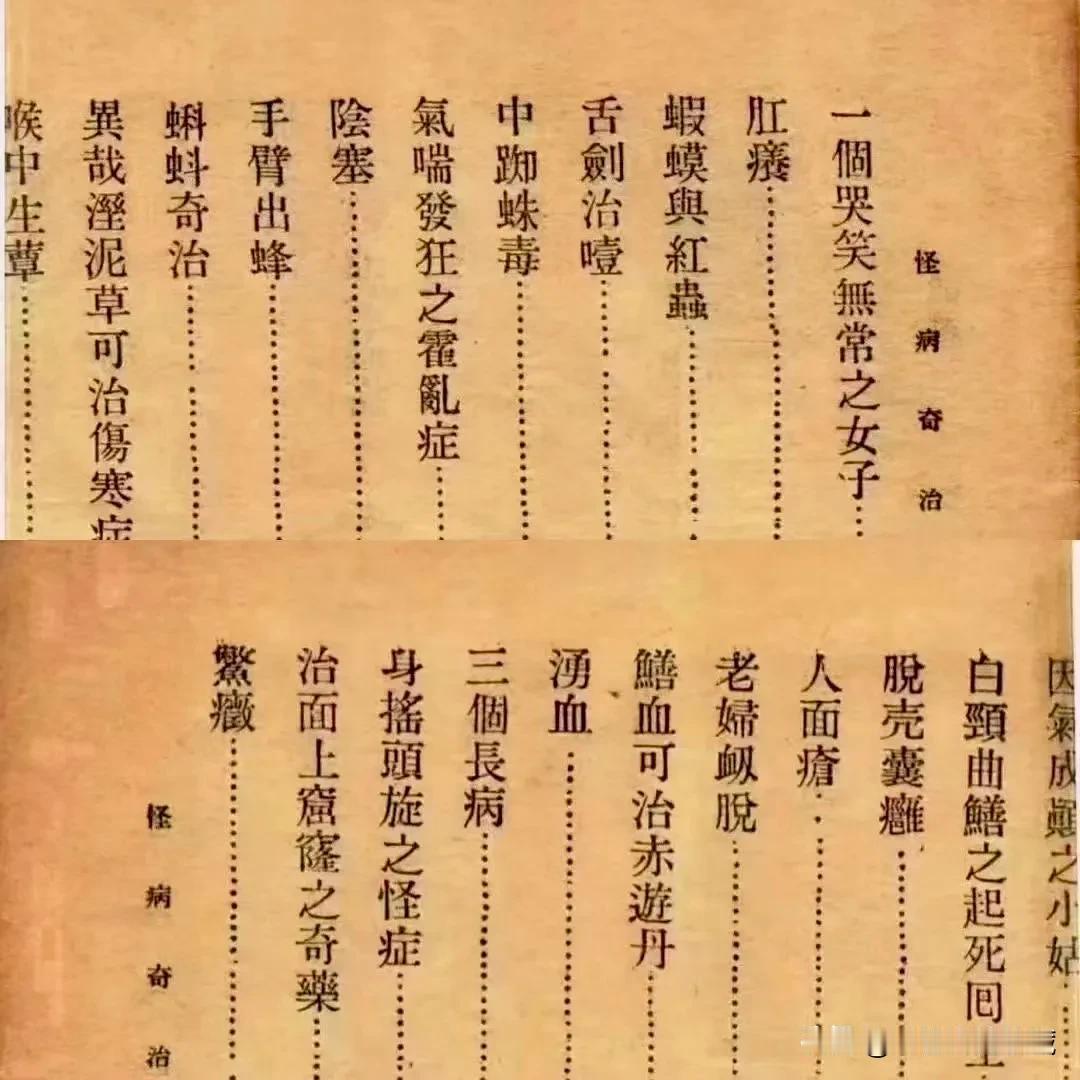 怪病奇治
一個哭笑無常之女子
肛癢
蝦蟆與紅蟲
舌劍治噎
中蜘蛛毒
氣喘發狂之霍亂症
陰塞
手臂出蜂
蝌蚪奇治
異哉溼泥草可治傷寒症
喉中生蕈
因氣成顚之小姑
白頸曲鱔之起死回
脫壳囊癰
人面瘡
老婦衂脫
鱔血可治赤遊丹
湧血
三個長病
身搖頭旋之怪症
治面上窟窿之奇藥
鱉癥
怪病奇治